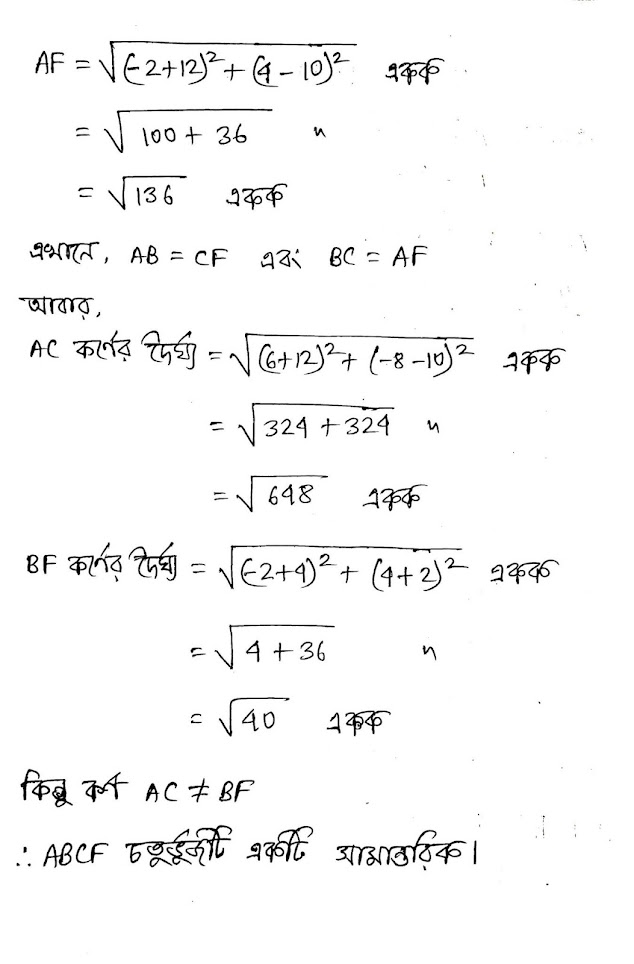 AF = √(-2+12)² + (4-10)² একক
= √100 + 36 "
= √136 একক
এখানে, AB = CF এবং BC = AF
আবার,
AC কর্ণের দৈর্ঘ্য = √(6+12)² + (-8-10)² একক
= √324 + 324 "
= √648 একক
BF কর্ণের দৈর্ঘ্য = √(-2+4)² + (4+2)² একক
= √4 + 36 "
= √40 একক
কিন্তু কর্ণ AC ≠ BF
∴ ABCF চতুর্ভুজটি একটি সামান্তরিক।